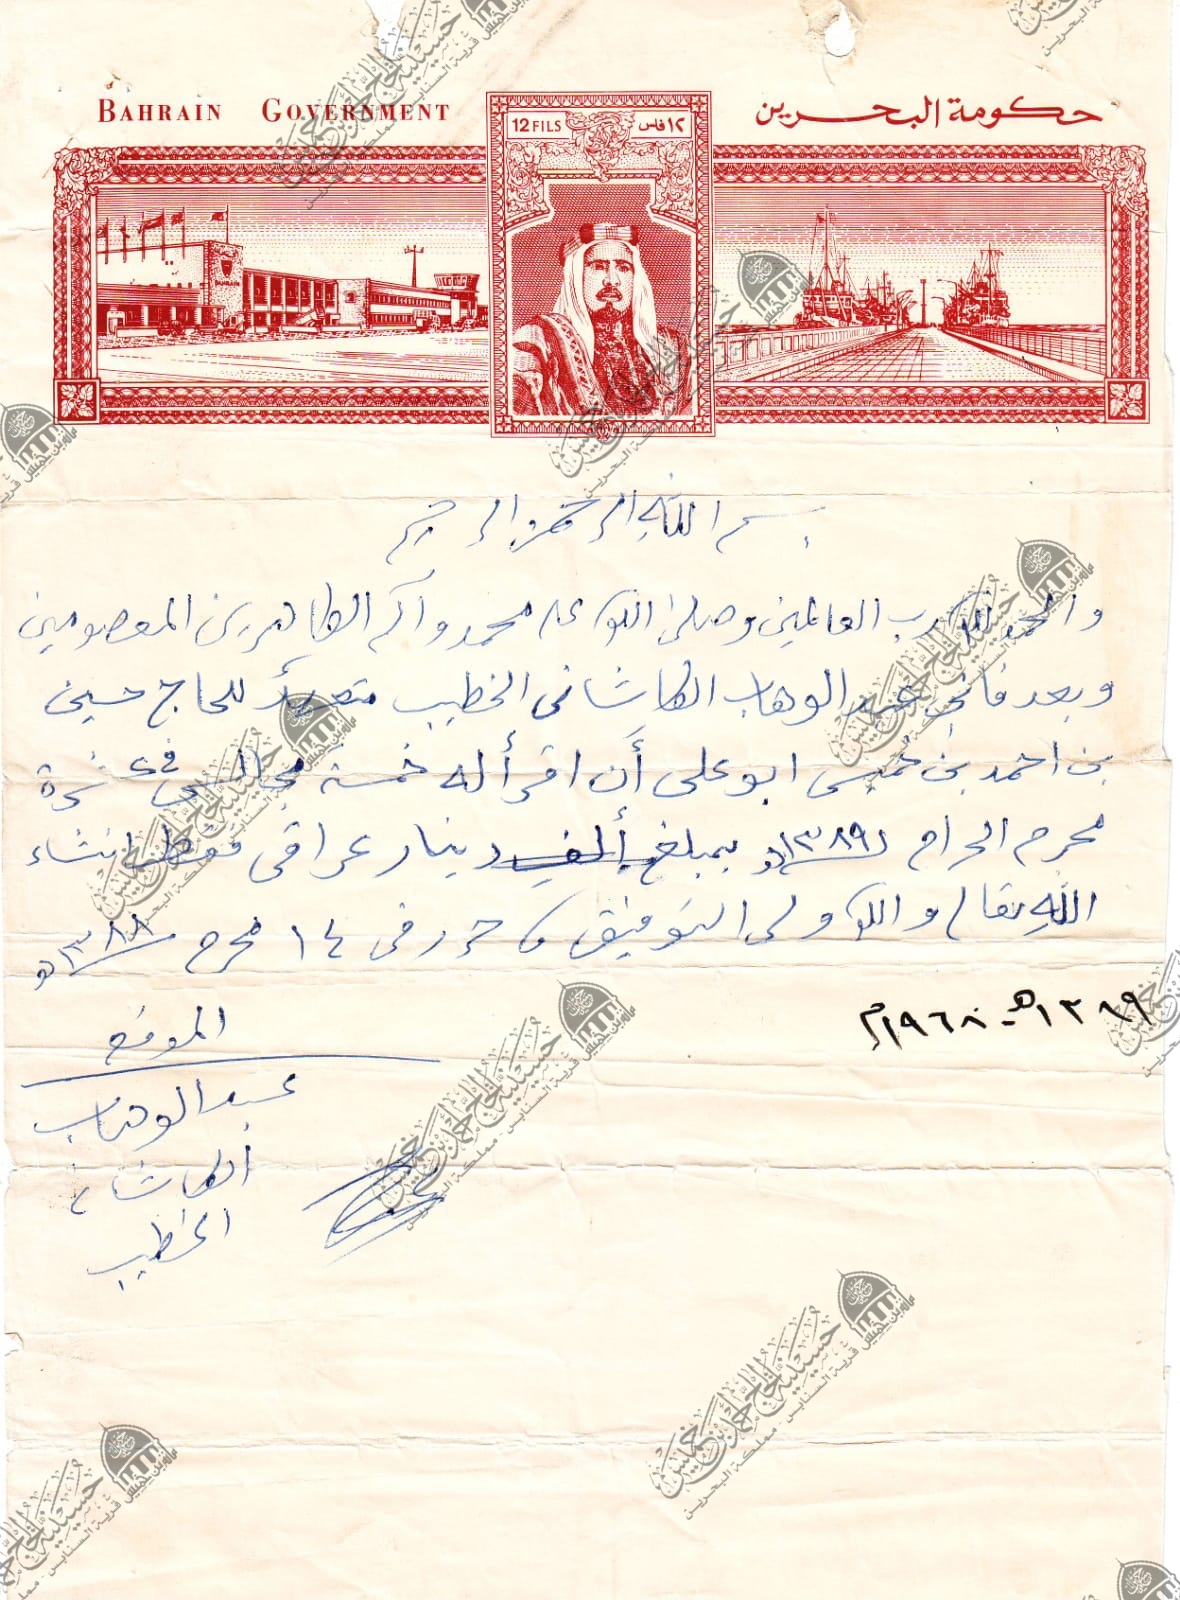 BAHRAIN GOVERNMENT
حكومة البحرين
12 FILS
١٢ فلس
BAHRAIN
بسم الله الرحمن الرحيم
والحمد لله رب العالمين وصلى الله على محمد وآله الطاهرين المعصومين
وبعد فاني عبد الوهاب الكاشاني الخطيب متعهداً للحاج حسين
بن احمد بن خميس ابو علي أن اقرأ له خمسة مجالس في عشرة
محرم الحرام ١٣٨٩هـ بمبلغ ألف دينار عراقي فقط انشاء
الله تعالى والله ولي التوفيق حرر في ١٤ محرم ١٣٨٨هـ
١٣٨٩هـ - ١٩٦٨م
الموقع
عبد الوهاب
الكاشاني
الخطيب
حسينية الحاج أحمد بن خميس
قرية السنابس - مملكة البحرين